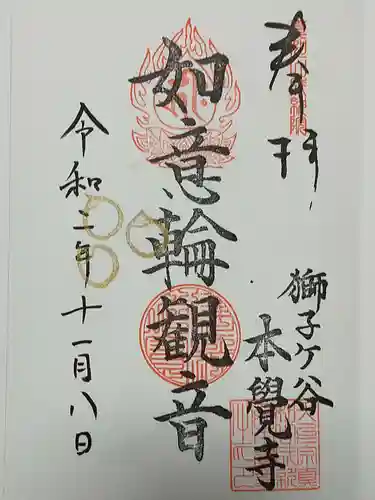 奉拝
獅子ケ谷
本覺寺
如意輪観音
令和二年十一月八日